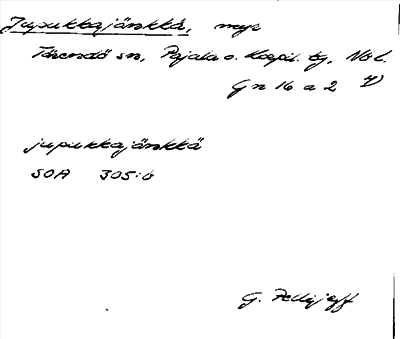 Jupukkajänkkä, myr
Tärendö sn, Pajala o. Korpil. tg, Nb l.
Gn 16 a 2
jupukkajänkkä
SOA 305:6
G. Pellijeff